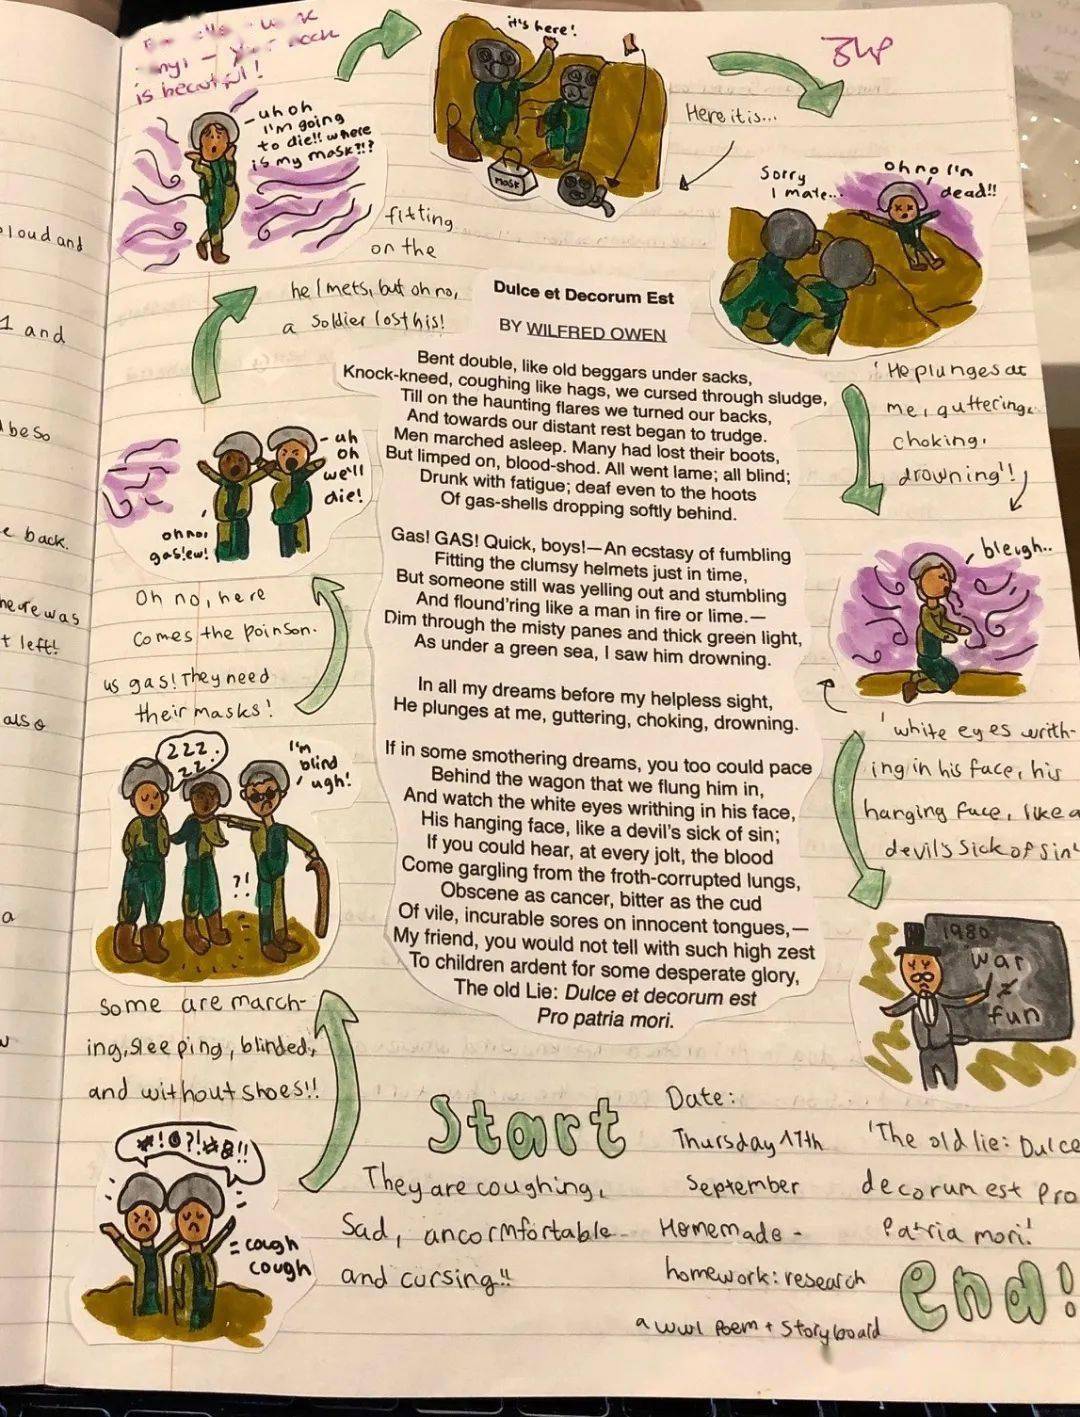 is beautiful!
3HP
Start
They are coughing,
Sad, ancormfortable
and cursing!!
*!@?!*@!!
= cough
cough
Some are march-
ing, sleeping, blinded,
and without shoes!!
zzz..
zz..
I'm
blind
ugh!
?!
Oh no, here
comes the poinson-
us gas! They need
their masks!
- uh
oh
we'll
die!
oh no,
gas! ew!
- uh oh
I'm going
to die!! where
is my mask?!?
fitting
on the
helmets, but oh no,
a Soldier lost his!
it's here!
MASK
Here it is...
Sorry
mate...
oh no I'm
dead!!
'He plunges at
me, guttering,
choking,
drowning'!
bleugh..
'white eyes writh-
ing in his face, his
hanging face, like a
devil's sick of sin'
1980
war
is
fun
'The old lie: Dulce
decorum est pro
Patria mori.'
end!
Date:
Thursday 17th
September
Homemade -
homework: research
a WW1 Poem + Storyboard
Dulce et Decorum Est
BY WILFRED OWEN
Bent double, like old beggars under sacks,
Knock-kneed, coughing like hags, we cursed through sludge,
Till on the haunting flares we turned our backs,
And towards our distant rest began to trudge.
Men marched asleep. Many had lost their boots,
But limped on, blood-shod. All went lame; all blind;
Drunk with fatigue; deaf even to the hoots
Of gas-shells dropping softly behind.
Gas! GAS! Quick, boys!—An ecstasy of fumbling
Fitting the clumsy helmets just in time,
But someone still was yelling out and stumbling
And flound'ring like a man in fire or lime.—
Dim through the misty panes and thick green light,
As under a green sea, I saw him drowning.
In all my dreams before my helpless sight,
He plunges at me, guttering, choking, drowning.
If in some smothering dreams, you too could pace
Behind the wagon that we flung him in,
And watch the white eyes writhing in his face,
His hanging face, like a devil's sick of sin;
If you could hear, at every jolt, the blood
Come gargling from the froth-corrupted lungs,
Obscene as cancer, bitter as the cud
Of vile, incurable sores on innocent tongues,—
My friend, you would not tell with such high zest
To children ardent for some desperate glory,
The old Lie: Dulce et decorum est
Pro patria mori.
loud and
1 and
be so
back.
here was
left!
also
a